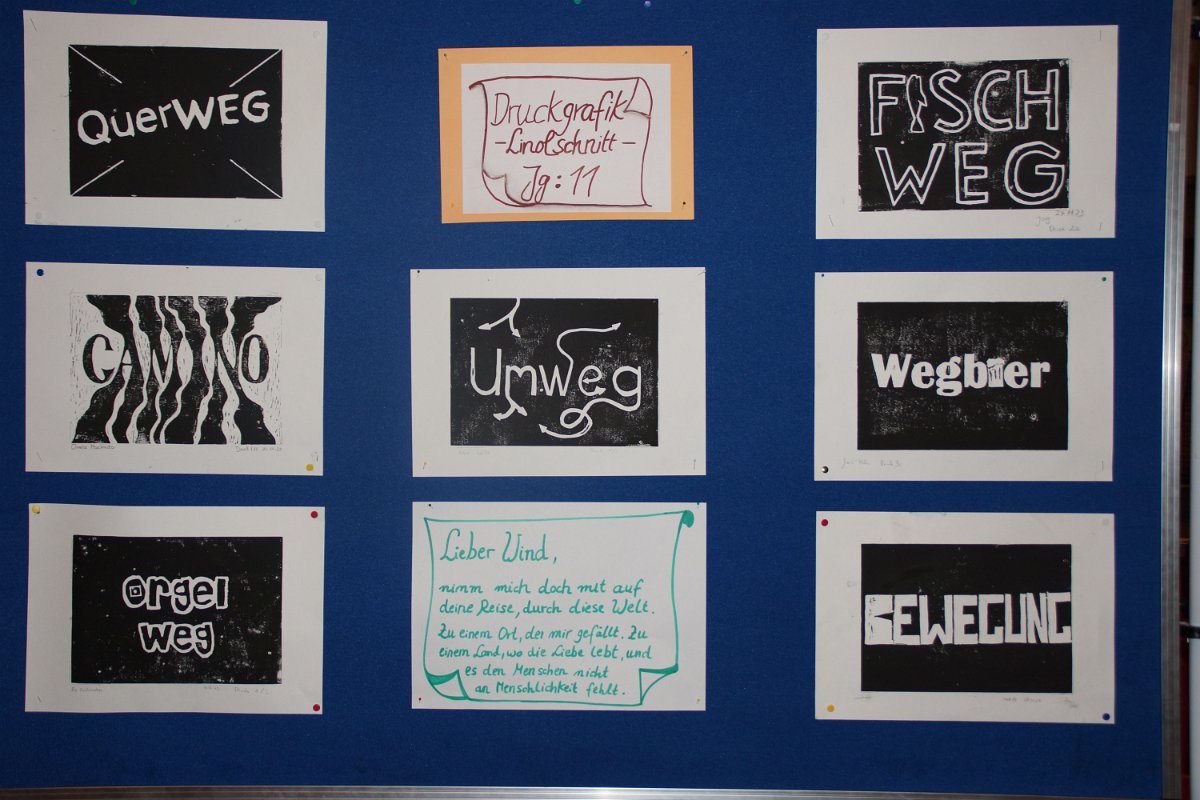 QuerWEG
Druckgrafik
-Linolschnitt-
Jg: 11
FISCH
WEG
CAMINO
Umweg
Wegbier
Orgel
weg
Lieber Wind,
nimm mich doch mit auf
deine Reise, durch diese Welt.
Zu einem Ort, der mir gefällt. Zu
einem Land, wo die Liebe lebt, und
es den Menschen nicht
an Menschlichkeit fehlt.
BEWEGUNG